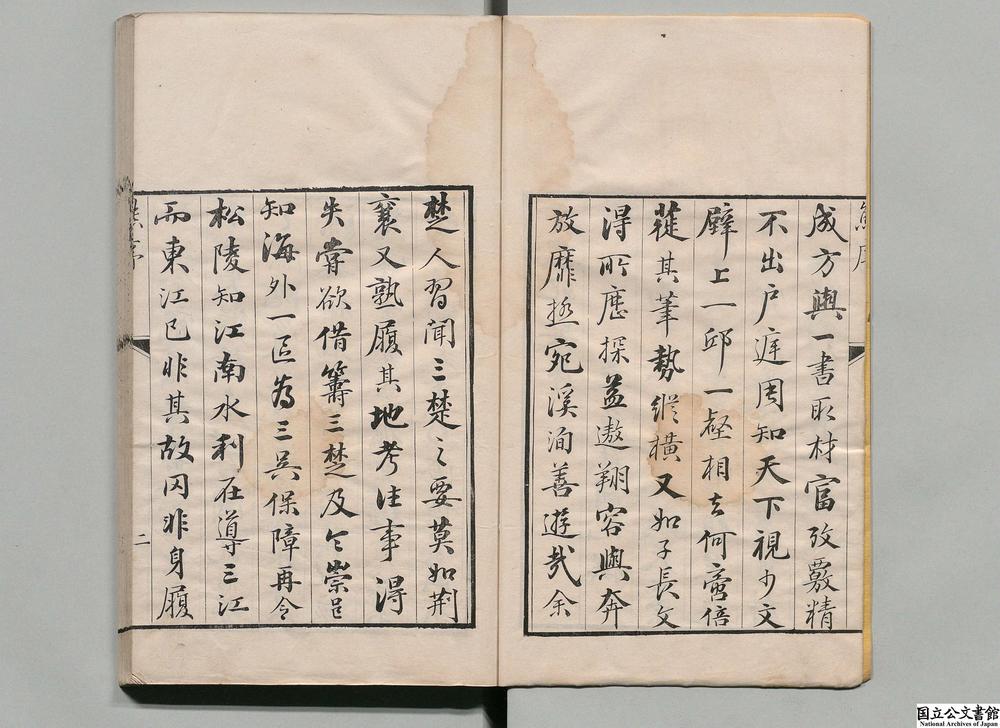 成方輿一書取材富攷覈精
不出戶庭周知天下視少文
壁上一邱一壑相去何啻倍
蓰其筆勢縱橫又如子長文
得所歷探益遨翔容與奔
放靡極宛溪洵善遊哉余
楚人習聞三楚之要莫如荆
襄又熟履其地考往事得
失嘗欲借籌三楚及令崇邑
知海外一區為三吳保障再令
松陵知江南水利在導三江
而東江已非其故因非身履
熊序
二
国立公文書館
National Archives of Japan